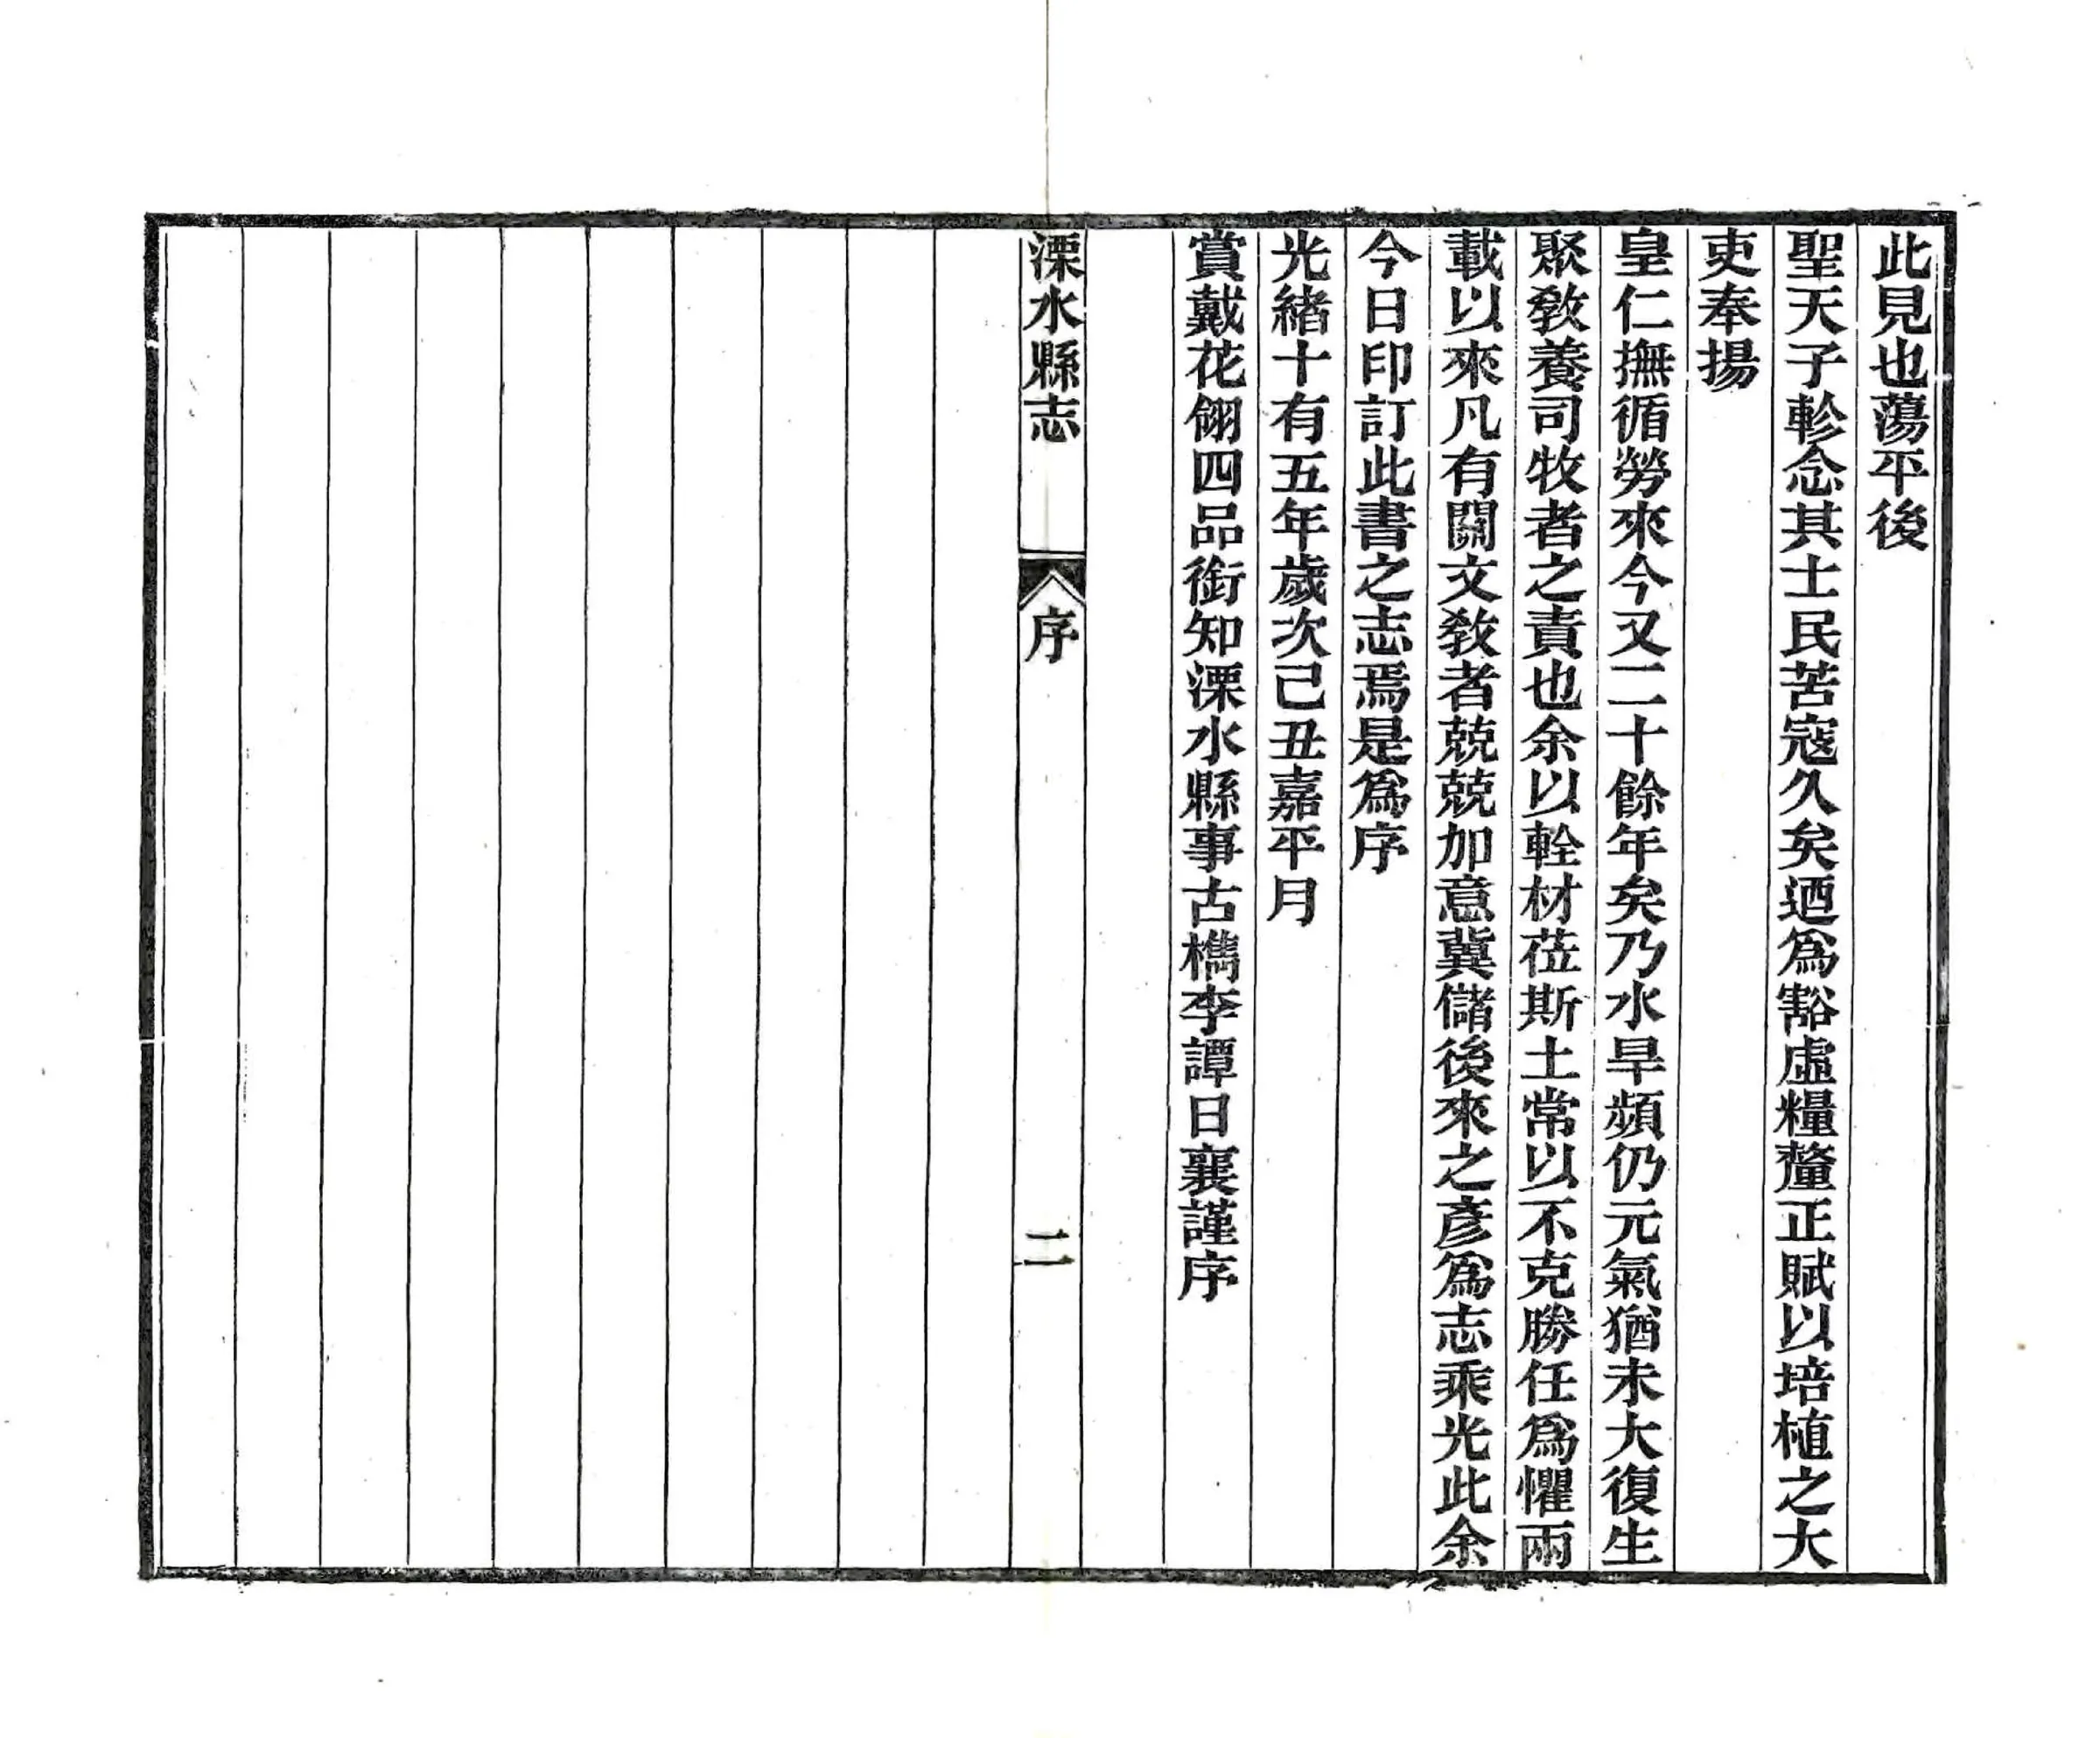 此見也蕩平後
聖天子軫念其士民苦寇久矣迺爲豁虛糧釐正賦以培植之大
吏奉揚
皇仁撫循勞來今又二十餘年矣乃水旱頻仍元氣猶未大復生
聚敎養司牧者之責也余以輇材莅斯土常以不克勝任爲懼兩
載以來凡有關文敎者兢兢加意冀儲後來之彥爲志乘光此余
今日印訂此書之志焉是爲序
光緖十有五年歲次己丑嘉平月
賞戴花翎四品銜知溧水縣事古檇李譚日襄謹序
溧水縣志
序
二